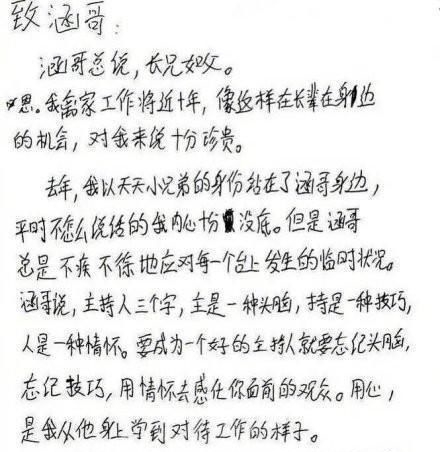 致涵哥：
涵哥总说，长兄如父。
嗯。我离家工作将近十年，像这样在长辈在身边
的机会，对我来说十分珍贵。
去年，我以天天小兄弟的身份站在了涵哥身边，
平时不怎么说话的我内心十分没底。但是涵哥
总是不疾不徐地应对每一个台上发生的临时状况。
涵哥说，主持人三个字，主是一种头脑，持是一种技巧，
人是一种情怀。要成为一个好的主持人就要忘记头脑，
忘记技巧，用情怀去感化你面前的观众。用心，
是我从他身上学到对待工作的样子。